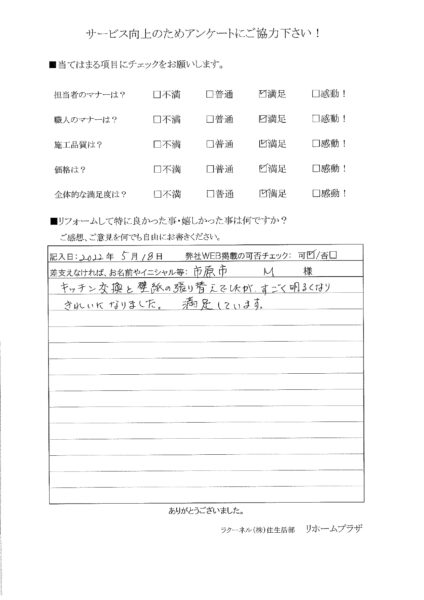 サービス向上のためアンケートにご協力下さい！
■当てはまる項目にチェックをお願いします。
担当者のマナーは？ □不満 □普通 ☑満足 □感動！
職人のマナーは？ □不満 □普通 ☑満足 □感動！
施工品質は？ □不満 □普通 ☑満足 □感動！
価格は？ □不満 □普通 ☑満足 □感動！
全体的な満足度は？ □不満 □普通 ☑満足 □感動！
■リフォームして特に良かった事・嬉しかった事は何ですか？
ご感想、ご意見を何でも自由にお書きください。
記入日：2022年 5月 18日 弊社WEB掲載の可否チェック： 可☑/否□
差支えなければ、お名前やイニシャル等： 市原市 M 様
キッチン交換と壁紙の張り替えでしたが、すごく明るくなり
きれいになりました。 満足しています。
ありがとうございました。
ラクーネル（株）住生活部 リホームプラザ